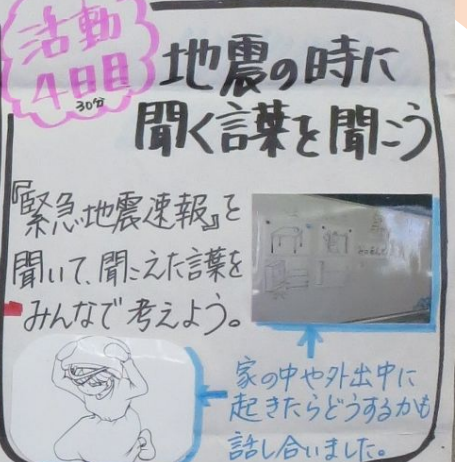 活動
4日目
30分
地震の時に
聞く言葉を聞こう
『緊急地震速報』を
聞いて、聞こえた言葉を
みんなで考えよう。
家の中や外出中に
起きたらどうするかも
話し合いました。